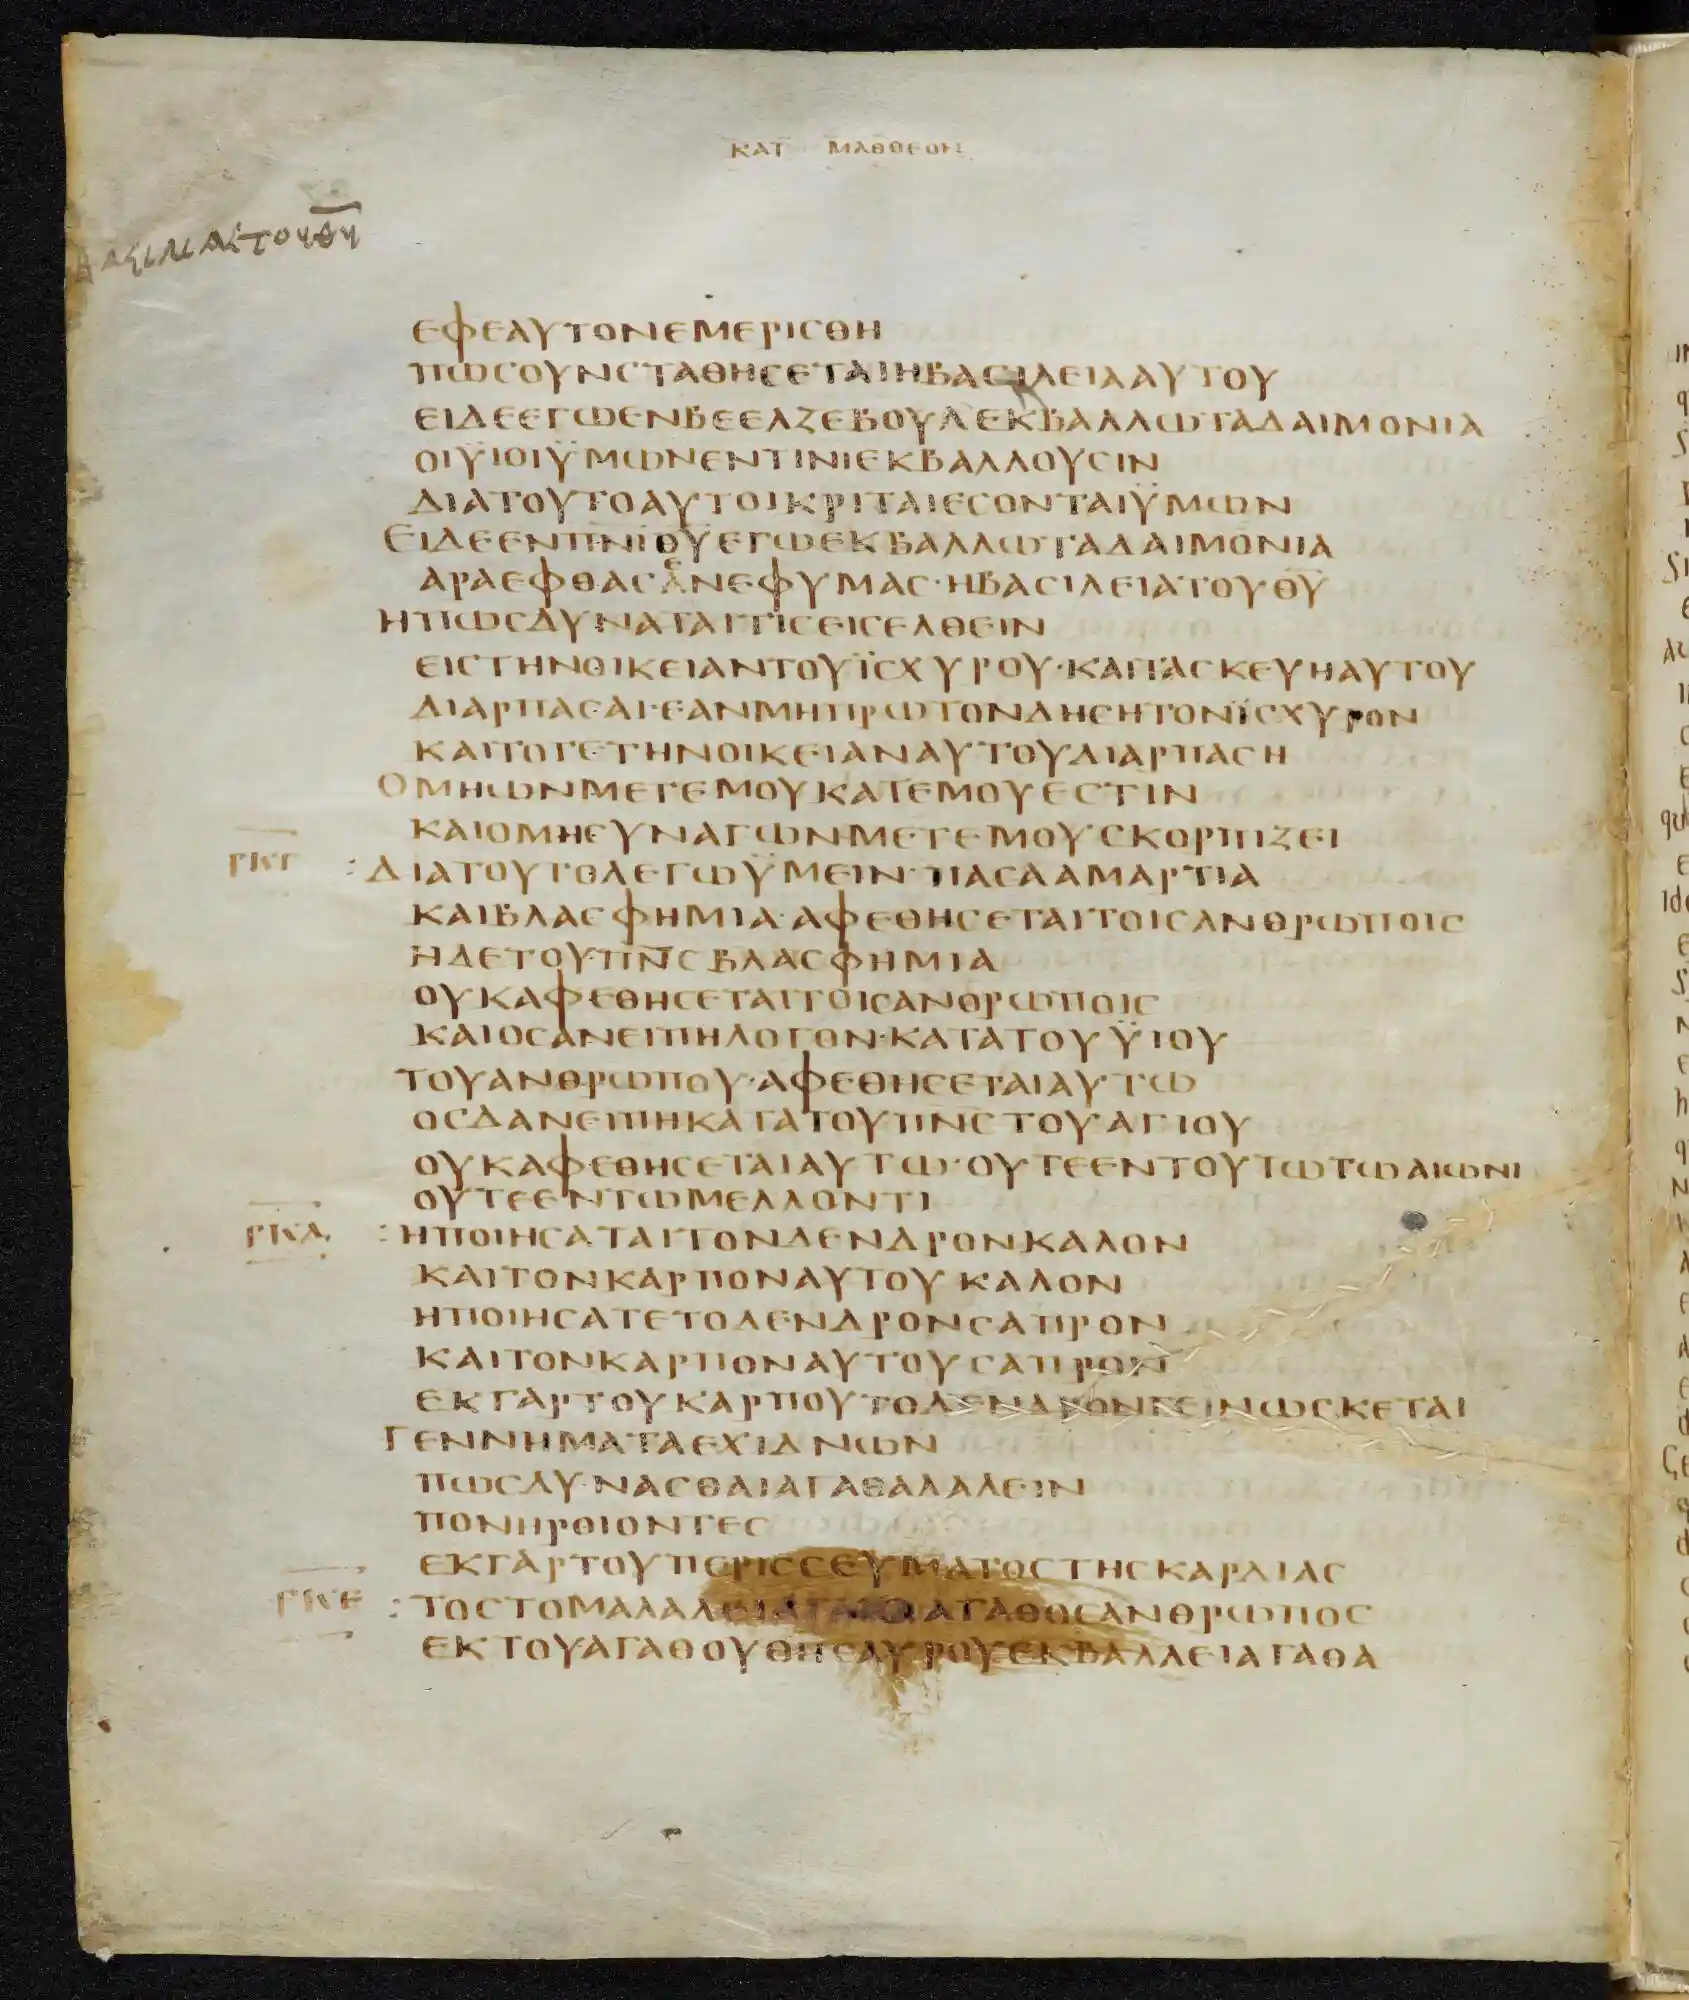 ΚΑΤ ΜΑΘΘΕΟΝ
ΕΦΕΑΥΤΟΝΕΜΕΡΙСΘΗ
ΠΩСΟΥΝСΤΑΘΗСΕΤΑΙΗΒΑСΙΛΕΙΑΑΥΤΟΥ
ΕΙΔΕΕΓΩΕΝΒΕΕΛΖΕΒΟΥΛΕΚΒΑΛΛΩΤΑΔΑΙΜΟΝΙΑ
ΟΙΫΙΟΙΫΜΩΝΕΝΤΙΝΙΕΚΒΑΛΛΟΥСΙΝ
ΔΙΑΤΟΥΤΟΑΥΤΟΙΚΡΙΤΑΙΕСΟΝΤΑΙΫΜΩΝ
ΕΙΔΕΕΝΠΝΙΘΥΕΓΩΕΚΒΑΛΛΩΤΑΔΑΙΜΟΝΙΑ
ΑΡΑΕΦΘΑСΕΝΕΦΥΜΑС·ΗΒΑСΙΛΕΙΑΤΟΥΘΥ
ΗΠΩСΔΥΝΑΤΑΙΤΙСΕΙСΕΛΘΕΙΝ
ΕΙСΤΗΝΟΙΚΕΙΑΝΤΟΥΪСΧΥΡΟΥ·ΚΑΙΤΑСΚΕΥΗΑΥΤΟΥ
ΔΙΑΡΠΑСΑΙ·ΕΑΝΜΗΠΡΩΤΟΝΔΗСΗΤΟΝΪСΧΥΡΟΝ
ΚΑΙΤΟΤΕΤΗΝΟΙΚΕΙΑΝΑΥΤΟΥΔΙΑΡΠΑСΗ
ΟΜΗΩΝΜΕΤΕΜΟΥΚΑΤΕΜΟΥΕСΤΙΝ
ΚΑΙΟΜΗСΥΝΑΓΩΝΜΕΤΕΜΟΥСΚΟΡΠΙΖΕΙ
ΡΚΓ :ΔΙΑΤΟΥΤΟΛΕΓΩΫΜΕΙΝ·ΠΑСΑΑΜΑΡΤΙΑ
ΚΑΙΒΛΑСΦΗΜΙΑ·ΑΦΕΘΗСΕΤΑΙΤΟΙСΑΝΘΡΩΠΟΙС
ΗΔΕΤΟΥΠΝСΒΛΑСΦΗΜΙΑ
ΟΥΚΑΦΕΘΗСΕΤΑΙΤΟΙСΑΝΘΡΩΠΟΙС
ΚΑΙΟСΑΝΕΙΠΗΛΟΓΟΝ·ΚΑΤΑΤΟΥΫΙΟΥ
ΤΟΥΑΝΘΡΩΠΟΥ·ΑΦΕΘΗСΕΤΑΙΑΥΤΩ
ΟСΔΑΝΕΙΠΗΚΑΤΑΤΟΥΠΝСΤΟΥΑΓΙΟΥ
ΟΥΚΑΦΕΘΗСΕΤΑΙΑΥΤΩ·ΟΥΤΕΕΝΤΟΥΤΩΤΩΑΙΩΝΙ
ΟΥΤΕΕΝΤΩΜΕΛΛΟΝΤΙ
ΡΚΔ :ΗΠΟΙΗСΑΤΑΙΤΟΝΔΕΝΔΡΟΝΚΑΛΟΝ
ΚΑΙΤΟΝΚΑΡΠΟΝΑΥΤΟΥΚΑΛΟΝ
ΗΠΟΙΗСΑΤΕΤΟΔΕΝΔΡΟΝСΑΠΡΟΝ
ΚΑΙΤΟΝΚΑΡΠΟΝΑΥΤΟΥСΑΠΡΟΝ
ΕΚΓΑΡΤΟΥΚΑΡΠΟΥΤΟΔΕΝΔΡΟΝΓΕΙΝΩСΚΕΤΑΙ
ΓΕΝΝΗΜΑΤΑΕΧΙΔΝΩΝ
ΠΩСΔΥΝΑСΘΑΙΑΓΑΘΑΛΑΛΕΙΝ
ΠΟΝΗΡΟΙΟΝΤΕС
ΕΚΓΑΡΤΟΥΠΕΡΙССΕΥΜΑΤΟСΤΗСΚΑΡΔΙΑС
ΡΚΕ :ΤΟСΤΟΜΑΛΑΛΕΙΑΓΑΘΑΑΓΑΘΟСΑΝΘΡΩΠΟС
ΕΚΤΟΥΑΓΑΘΟΥΘΗСΑΥΡΟΥΕΚΒΑΛΛΕΙΑΓΑΘΑ